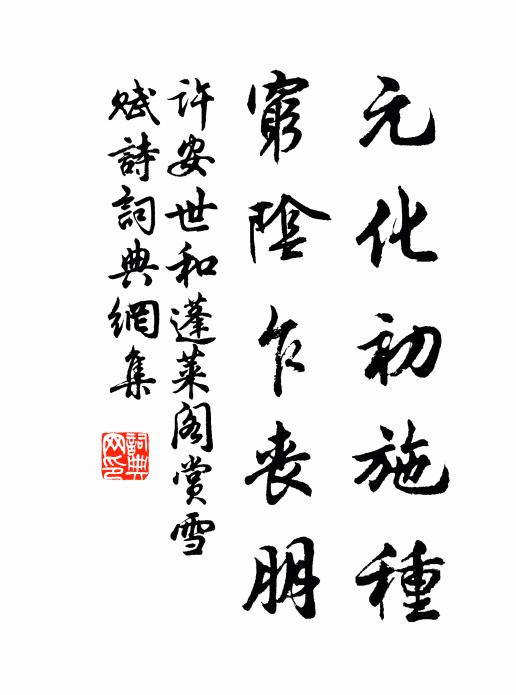 元化初施種
窮陰乍喪朋
許安世和蓬萊閣賞雪
賦詩詞典網集
詞典網印